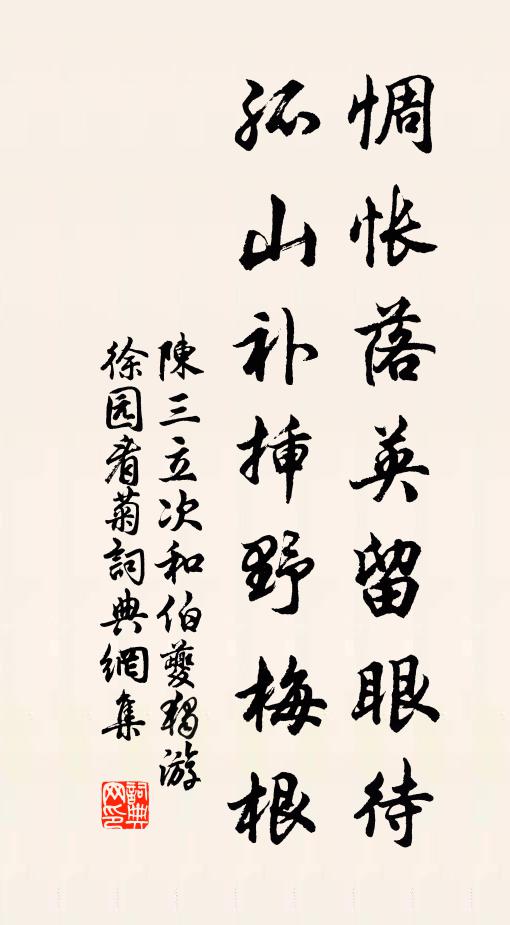 惆怅落英留眼待
孤山补揷野梅根
陳三立次和伯夔獨游
徐园看菊詞典網集
詞典网印